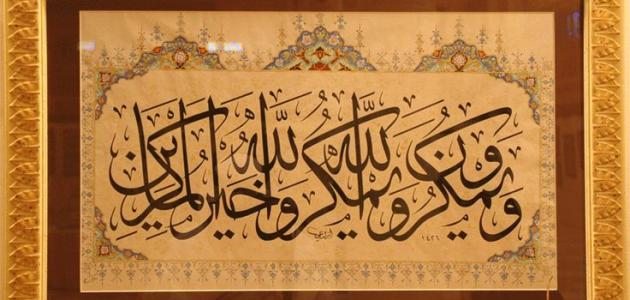 ويمكرون ويمكر الله والله خير الماكرين
١٤٢٦